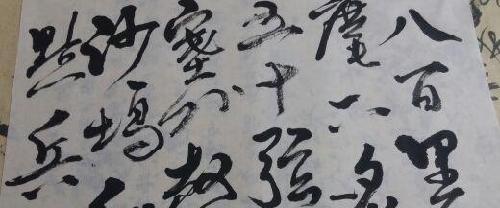 八百里
麾下炙
五十弦
塞外聲
沙場
點兵